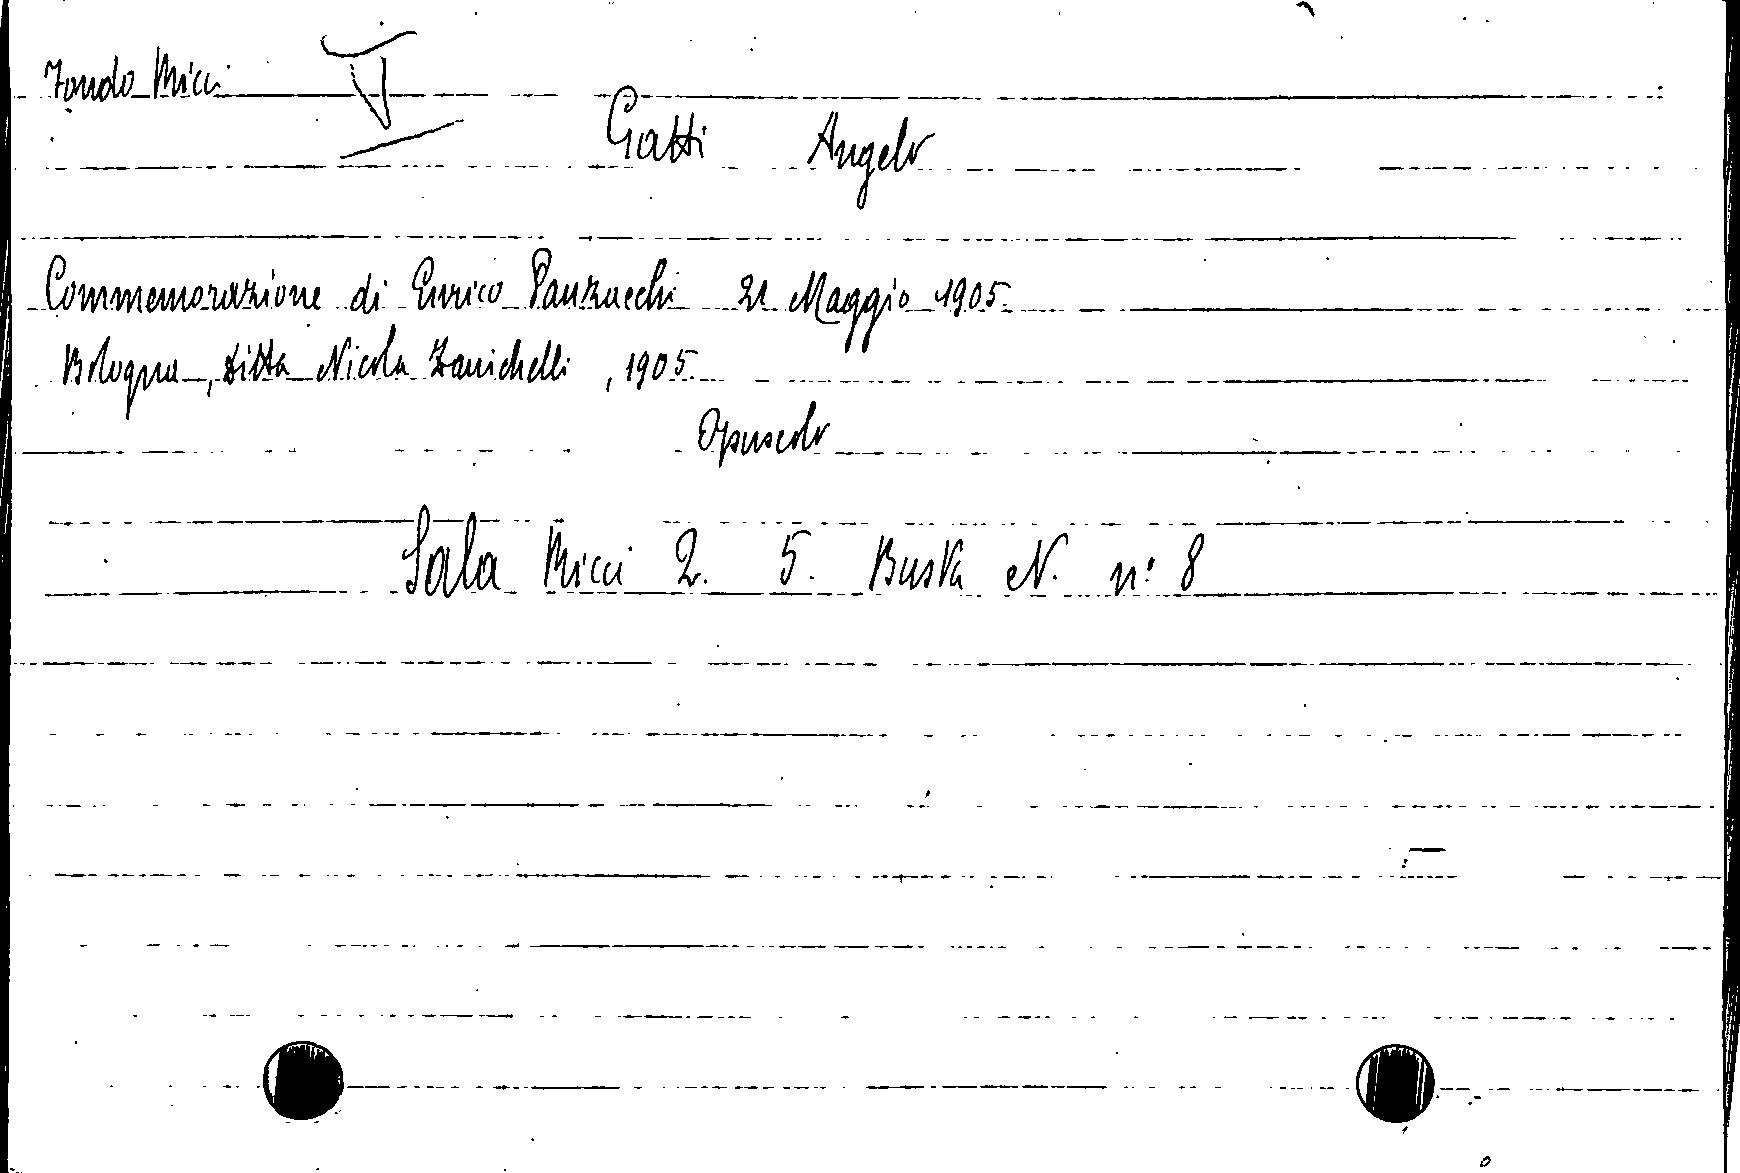 Fondo Micci
Gatti Angelo
Commemorazione di Enrico Panzacchi 21 Maggio 1905.
Bologna, Ditta Nicola Zanichelli, 1905.
Opuscolo
Sala Micci 2. 5. Busta N. n° 8